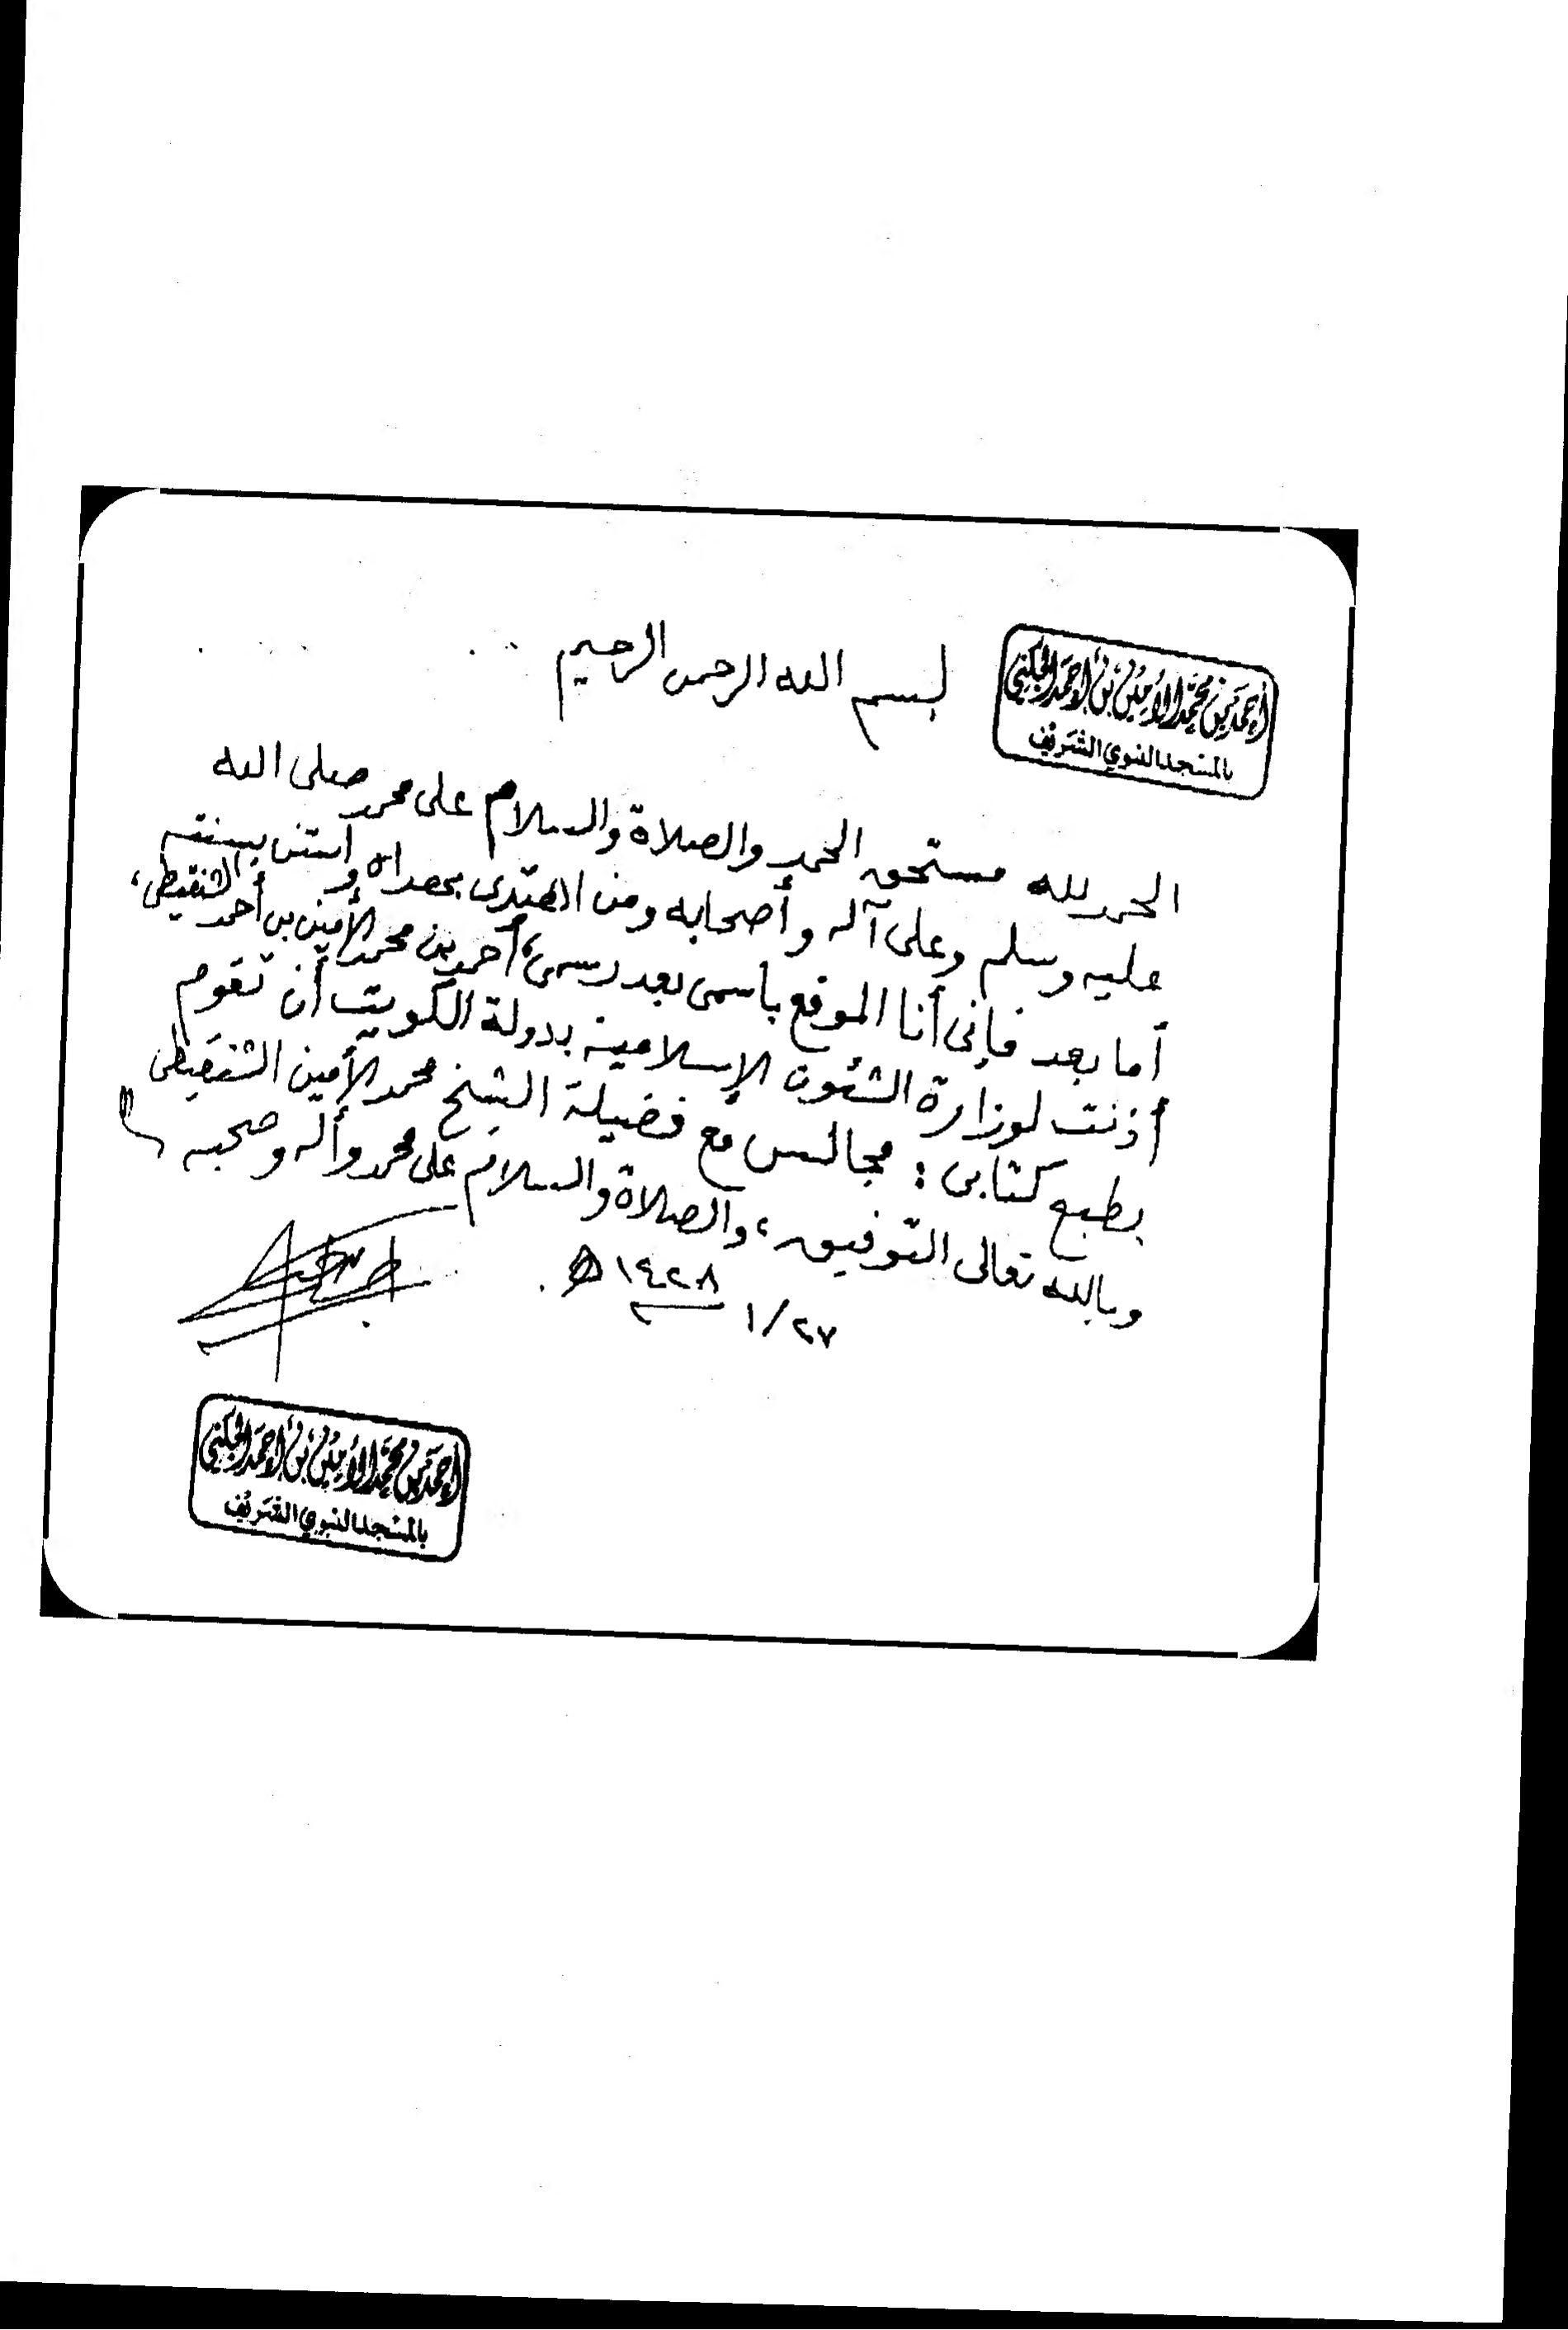 أحمد بن محمد الأمين بن أحمد الجكني
بالمسجد النبوي الشريف
بسم الله الرحمن الرحيم
الحمد لله مستحق الحمد والصلاة والسلام على محمد صلى الله
عليه وسلم وعلى آله وأصحابه ومن اهتدى بهداه واستن بسنته
أما بعد فإنى أنا الموقع باسمى بعد رسمى، أحمد بن محمد الأمين بن أحمد الشنقيطى،
أذنت لوزارة الشئون الإسلامية بدولة الكويت أن تقوم
بطبع كتابى: مجالس مع فضيلة الشيخ محمد الأمين الشنقيطى
وبالله تعالى التوفيق، والصلاة والسلام على محمد وآله وصحبه
٢٧/١ ١٤٢٨ هـ.
أحمد بن محمد الأمين بن أحمد الجكني
بالمسجد النبوي الشريف